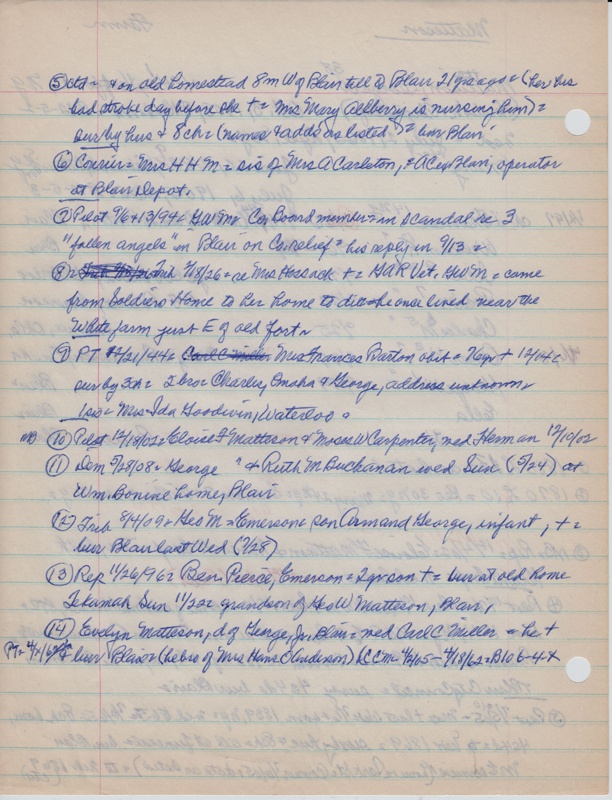 ⑤ ctd = & on old homestead 8 m W of Blair till to Blair 21 yrs ago = (her hus
had stroke day before she t = Mrs Mary Allberry is nursing him) =
sur by hus & 8 ch = (names & adds as listed) = bur Blair
⑥ Courier = Mrs H H M = sis of Mrs A Carleton, = AC ex Blair, operator
at Blair Depot.
⑦ Pilot 9/6 & 13/94 = GW M Co, Board member = in scandal re 3
"fallen angels" in Blair on Co. relief = his reply in 9/13 =
⑧ 2/18/26 = re Mrs Hossack t = GAR Vet, Geo M = came
from Soldiers Home to her home to die = he once lived near the
White farm just E of old fort =
⑨ PT 12/21/44 = Carl C Miller Mrs Frances Barton obit = t 12/14 =
sur by 3 ch = 2 bro = Charles, Omaha & George, address unknown
1 sis = Mrs Ida Goodwin, Waterloo =
⑩ Pilot 12/18/02 = Eloise F Matteson & Moses W Carpenter, wed Herman 12/10/02
⑪ Dem 5/28/08 = George " & Ruth M Buchanan wed Sun (5/24) at
Wm. Bonine home, Blair
⑫ Trib 8/4/09 = Geo M = Emerson = son Armand George, infant, t =
bur Blair last Wed (7/28)
⑬ Rep 11/26/96 = Ben Pierce, Emerson = 2 yr son t = bur at old home
Tekamah Sun 11/22 = grandson of Geo W Matteson, Blair,
⑭ Evelyn Matteson, d of George, Jr. Blair = wed Carl C Miller = he t
& bur Blair = (he bro of Mrs Hans O Anderson) CCM = 4/18/62 = B106-4-4